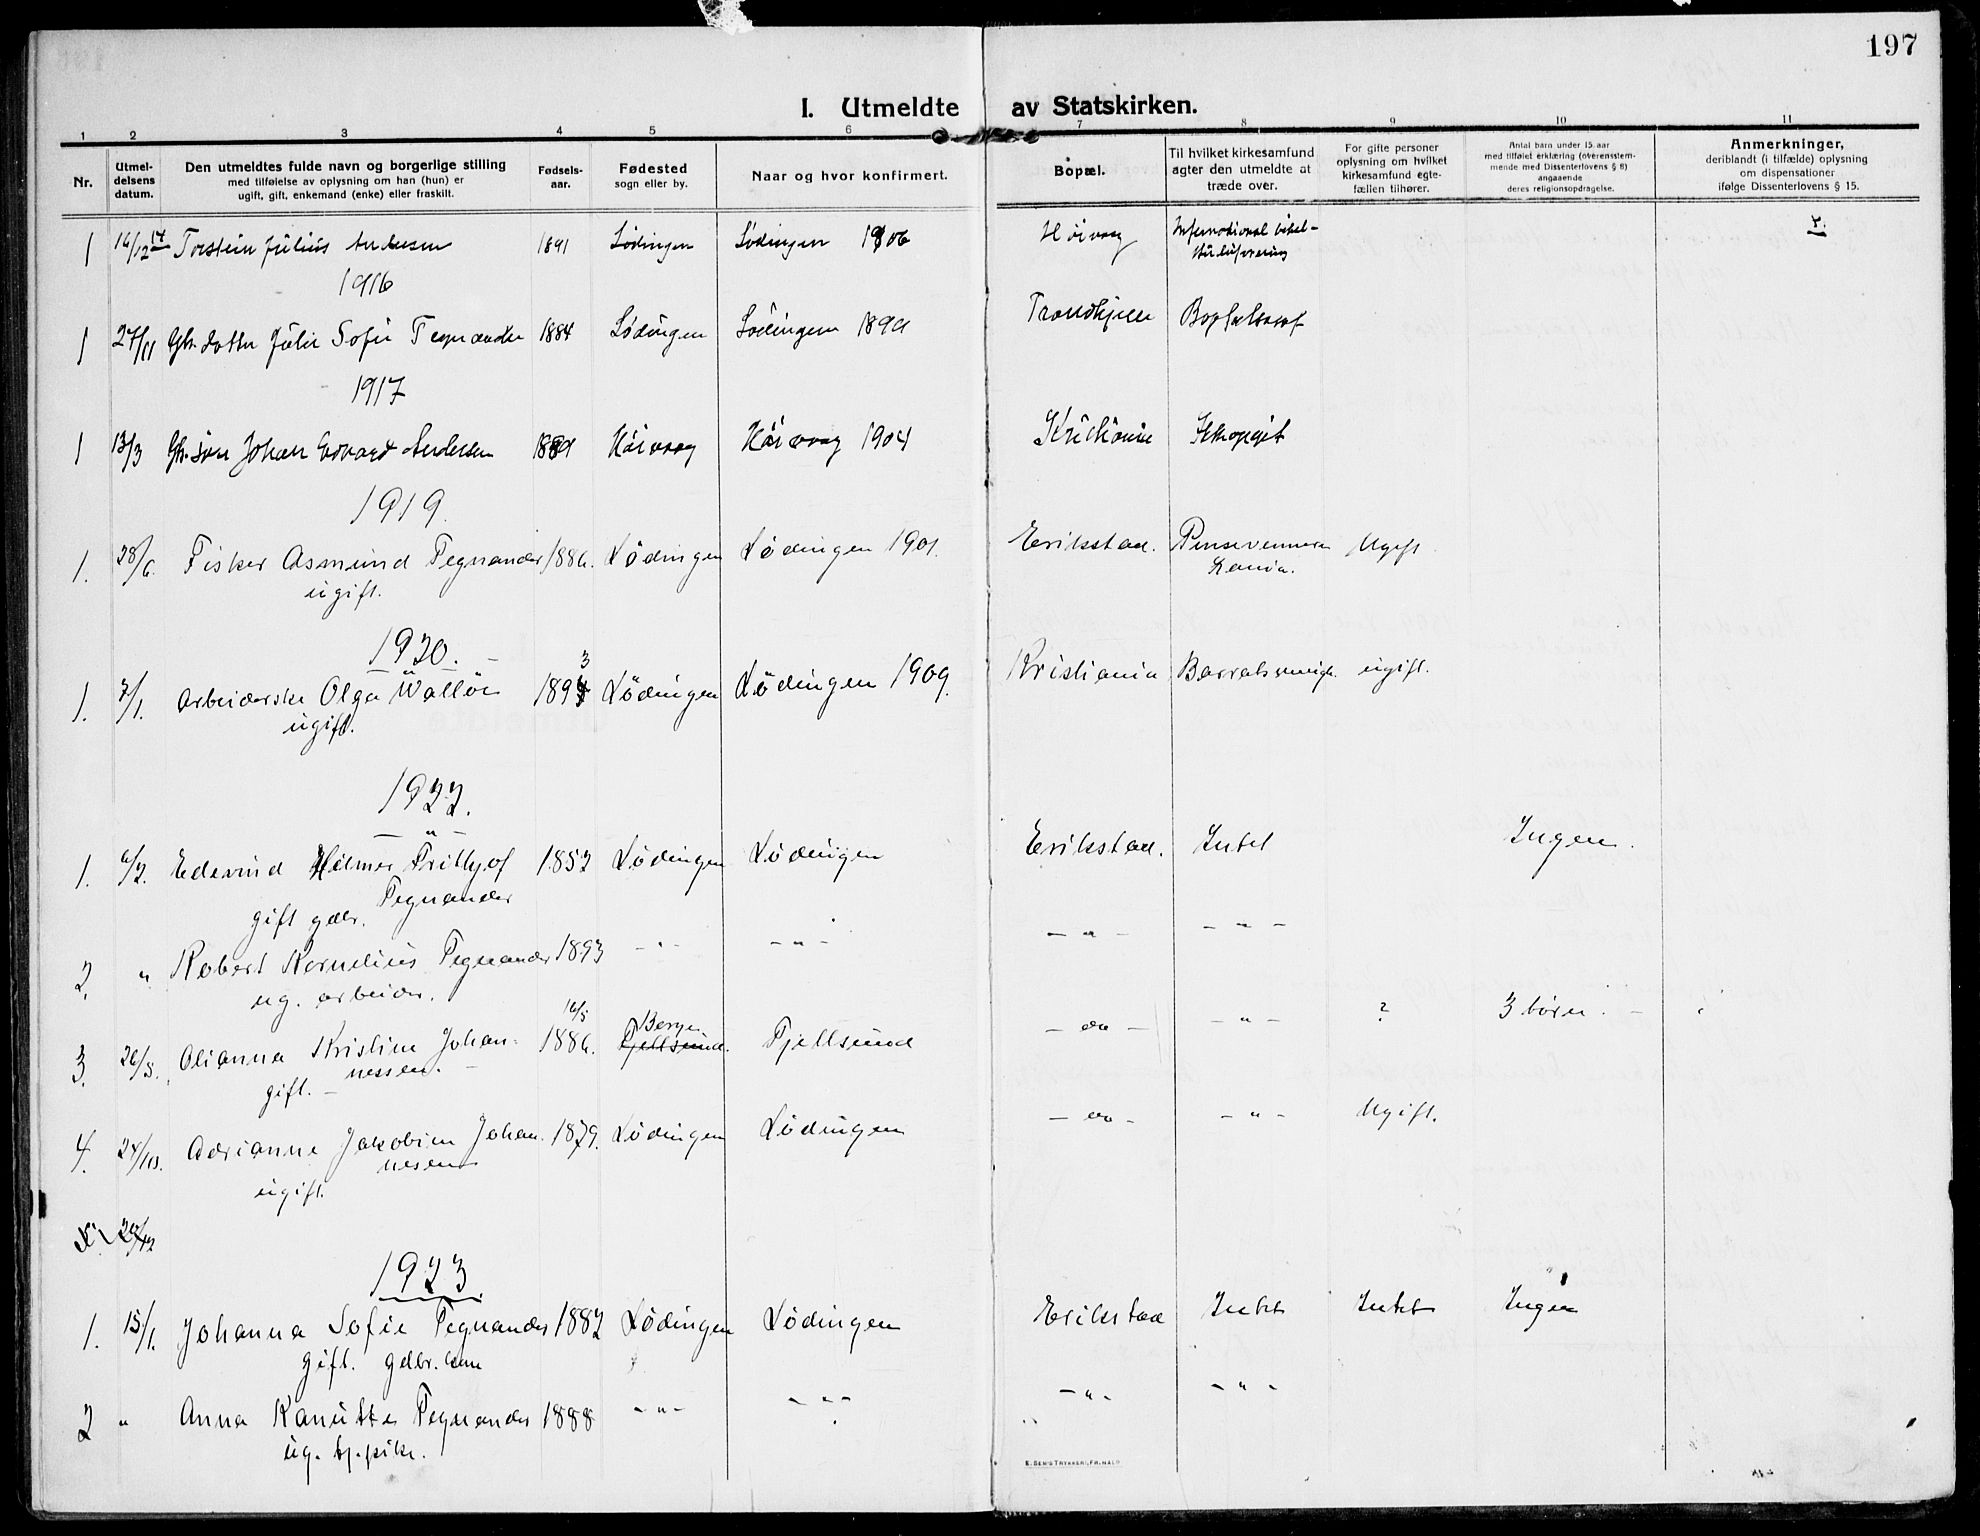 197
I. Utmeldte av Statskirken.
1 2 3 4 5 6 7 8 9 10 11
Nr.
Utmel-
delsens
datum.
Den utmeldtes fulde navn og borgerlige stilling
med tilføielse av oplysning om han (hun) er
ugift, gift, enkemand (enke) eller fraskilt.
Fødsels-
aar.
Fødested
sogn eller by.
Naar og hvor konfirmert.
Bopæl.
Til hvilket kirkesamfund
agter den utmeldte at
træde over.
For gifte personer
oplysning om hvilket
kirkesamfund egte-
fællen tilhører.
Antal barn under 15 aar
med tilføiet erklæring (overensstem-
mende med Dissenterlovens § 8)
angaaende
deres religionsopdragelse.
Anmerkninger,
deriblandt (i tilfælde) oplysning
om dispensationer
ifølge Dissenterlovens § 15.
1 16/12 14 Torstein Julius Andersen 1891 Lødingen Lødingen 1906 Høivaag International bibel-
1916
1 27/11 Julie Sofie Tegnander 1884 Lødingen Lødingen 1899 Trondhjem
1917
1 13/3 Gb. søn Johan Edvard Andersen 1889 Høivaag Høivaag 1904 Kristiania
1919.
1. 28/6. Fisker Asmund Tegnander 1886. Lødingen Lødingen 1901. Erikstad. Pinsevennern Ugift
ugift.
1920.
1. 7/1. Arbeiderske Olga Walløe 1893 Lødingen Lødingen 1909. Kristiania ugift.
ugift.
1922.
1. 6/2. Edevind Hilmer Frithjof 1852 Lødingen Lødingen Erikstad. Intet Ingen.
Tegnander
gift gdbr.
2. " Robert Kornelius Tegnander 1893 - " - - " - - " - - " -
ug. arbeider.
16/5 Berge
3. 26/8. Olianna Kristine Johan- 1886. Fjellsund. Fjellsund - do - - " - ? 3 børn. -
nessen. -
gift. -
4. 24/10. Adrianne Jakobine Johan- 1879. Lødingen Lødingen - do - - " - Ugift.
nesen
ugift.
5. 20/12
1923.
1. 15/1. Johanna Sofie Tegnander 1882 Lødingen Lødingen Erikstad Intet Intet Ingen
gift. gdbr. kone
2 " Anna Kanutte Tegnander 1888 - " - - " - - " - - " -
ug. tj. pike.
E. SEM'S TRYKKERI, FR.HALD